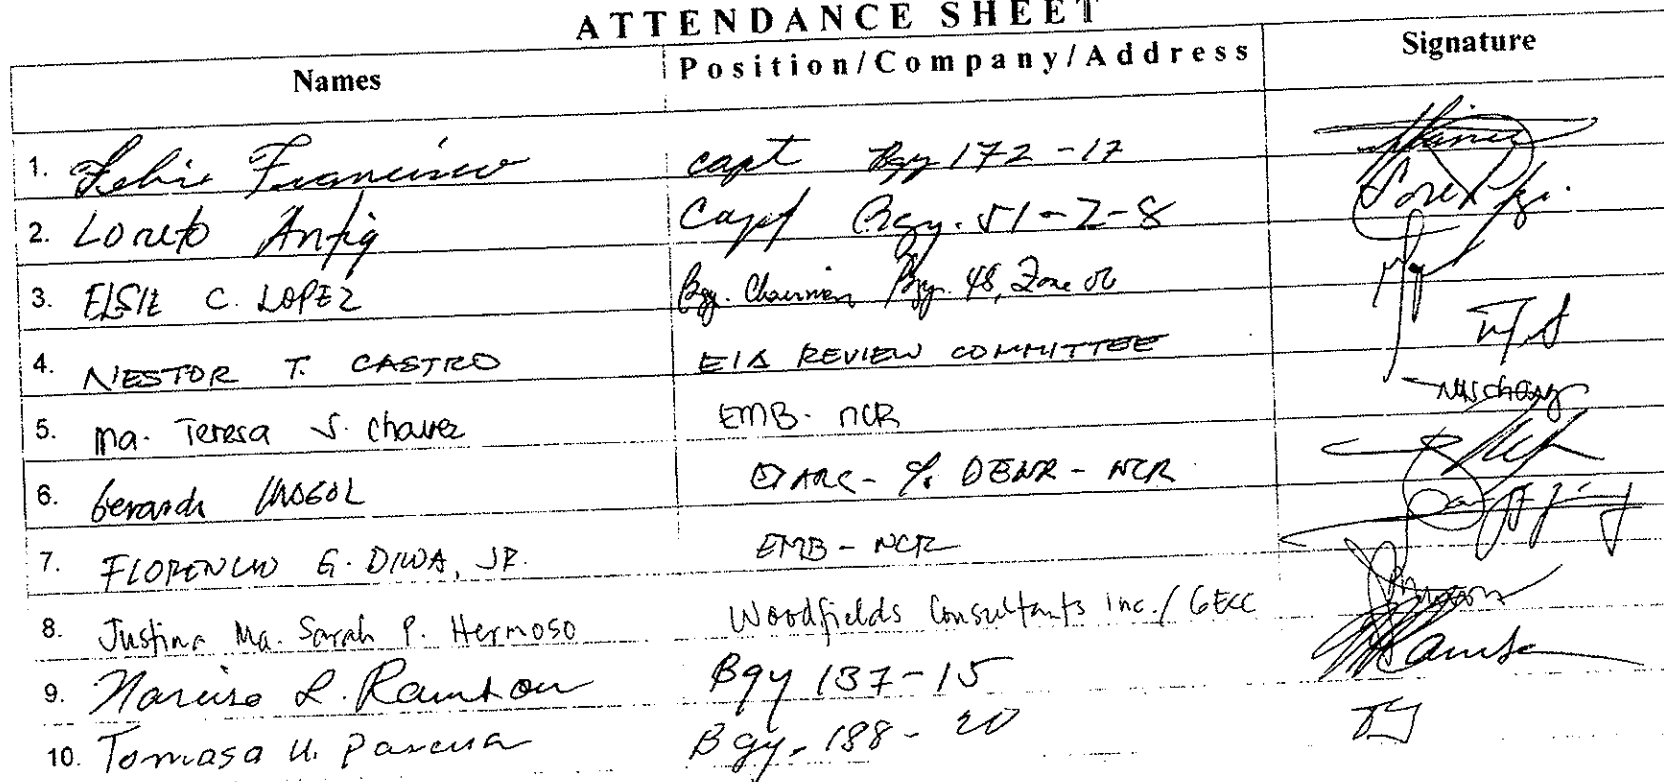 ATTENDANCE SHEET
Names Position/Company/Address Signature
1. Francisco capt Bgy 172-17
2. Loreto Antig Capt Bgy. 51-2-8
3. ELSIE C. LOPEZ Bgy. Chairman Bgy. 48, Zone 06
4. NESTOR T. CASTRO EIA REVIEW COMMITTEE
5. Ma. Teresa S. Chavez EMB-NCR
6. Gerardo EIARC - c/o DENR - NCR
7. FLORENCIO G. DIWA, JR. EMB-NCR
8. Justina Ma. Sarah P. Hermoso Woodfields Consultants Inc./GECC
9. Narciso L. Bgy 137-15
10. Tomasa U. Bgy. 188-20